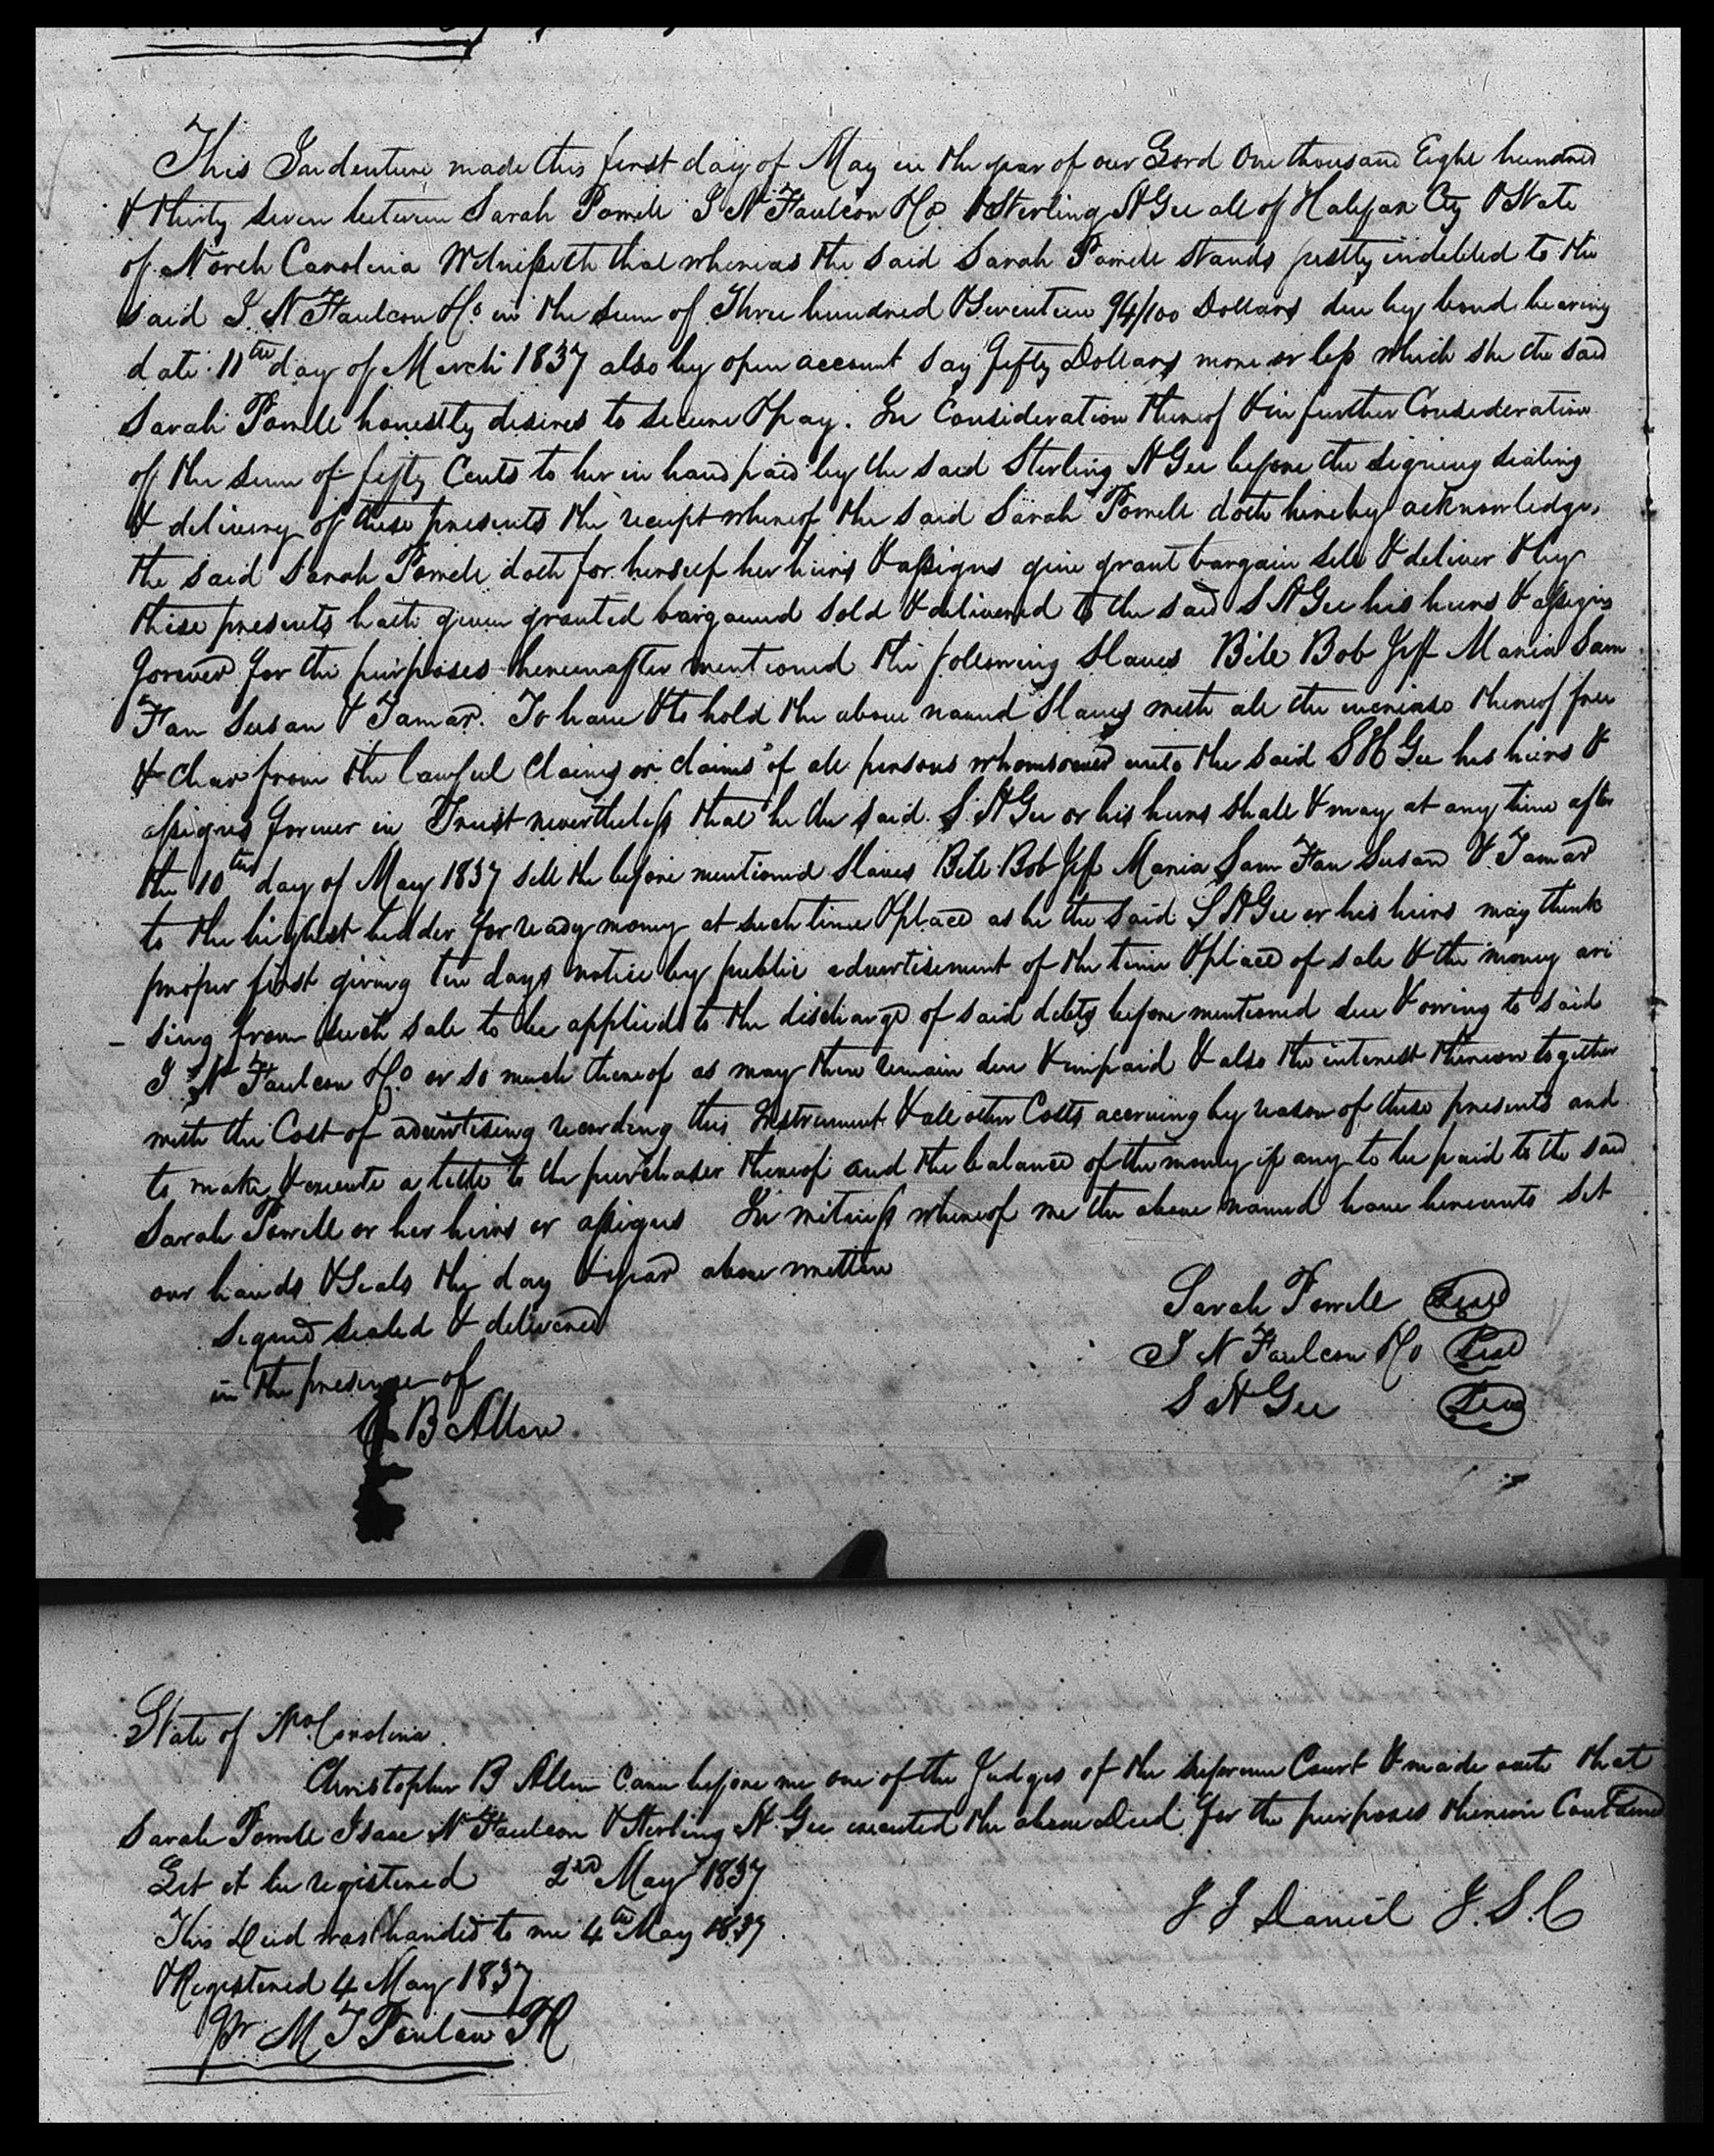 This Indenture made this first day of May in the year of our Lord One thousand Eight hundred
& thirty seven between Sarah Powell I N Faulcon & Co & Sterling H Gee all of Halifax Cty & State
of North Carolina Witnesseth that whereas the said Sarah Powell stands justly indebted to the
said I. N Faulcon & Co in the sum of Three hundred & Seventeen 94/100 Dollars due by bond bearing
date 11th day of March 1837 also by open account say fifty Dollars more or less which she the said
Sarah Powell honestly desires to secure & pay. In Consideration thereof & in further Consideration
of the sum of fifty Cents to her in hand paid by the said Sterling H Gee before the signing sealing
& delivery of these presents the receipt whereof the said Sarah Powell doth hereby acknowledge,
the said Sarah Powell doth for herself her heirs & assigns give grant bargain sell & deliver & by
these presents hath given granted bargained sold & delivered to the said S H Gee his heirs & assigns
forever for the purposes hereinafter mentioned the following Slaves Bill Bob Jeff Maria Sam
Fan Susan & Tamar. To have & to hold the above named Slaves with all the increase thereof free
& clear from the lawful claims or claims of all persons whomsoever unto the said S H Gee his heirs &
assigns forever in Trust nevertheless that he the said S. H Gee or his heirs shall & may at any time after
the 10th day of May 1837 sell the before mentioned Slaves Bill Bob Jeff Maria Sam Fan Susan & Tamar
to the highest bidder for ready money at such time & place as he the said S H Gee or his heirs may think
proper first giving ten days notice by public advertisement of the time & place of sale & the money ari
- sing from such sale to be applied to the discharge of said debts before mentioned due & owing to said
I N Faulcon & Co or so much thereof as may then remain due & unpaid & also the interest thereon together
with the Cost of advertising recording this Instrument & all other Costs accruing by reason of these presents and
to make & execute a title to the purchaser thereof and the balance of the money if any to be paid to the said
Sarah Powell or her heirs or assigns In witness whereof we the above named have hereunto set
our hands & Seals the day & year above written
Signed sealed & delivered
in the presence of
C B Allen
Sarah Powell Seal
I N Faulcon & Co Seal
S H Gee Seal
State of No. Carolina.
Christopher B Allen came before me one of the Judges of the Supreme Court & made oath that
Sarah Powell Isaac N Faulcon & Sterling H. Gee executed the above Deed for the purposes therein Contained
Let it be registered 2nd May 1837
J J Daniel J. S. C
This Deed was handed to me 4th May 1837.
& Registered 4 May 1837
Pr M T Ponton PR